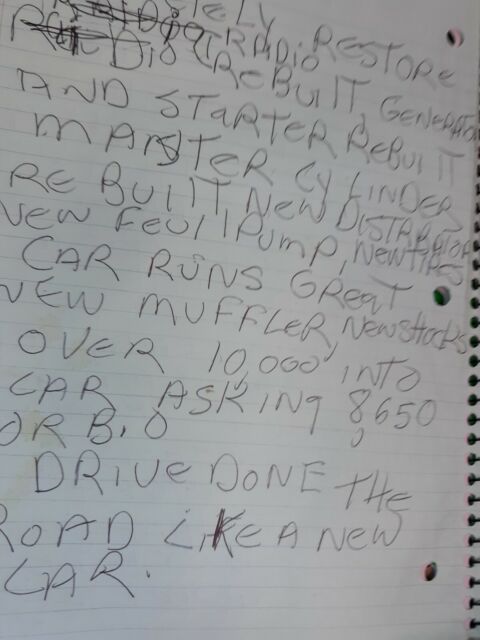 RADIO RESTORE
REBUILT, GENERATOR
AND STARTER REBUILT
MASTER CYLINDER
REBUILT NEW DISTRIBATOR
NEW FEUL PUMP, NEW TIRES
CAR RUNS GREAT
NEW MUFFLER, NEW SHOCKS
OVER 10,000 INTO
CAR ASKING 8,650
OR B.O
DRIVE DONE THE
ROAD LIKE A NEW
CAR.